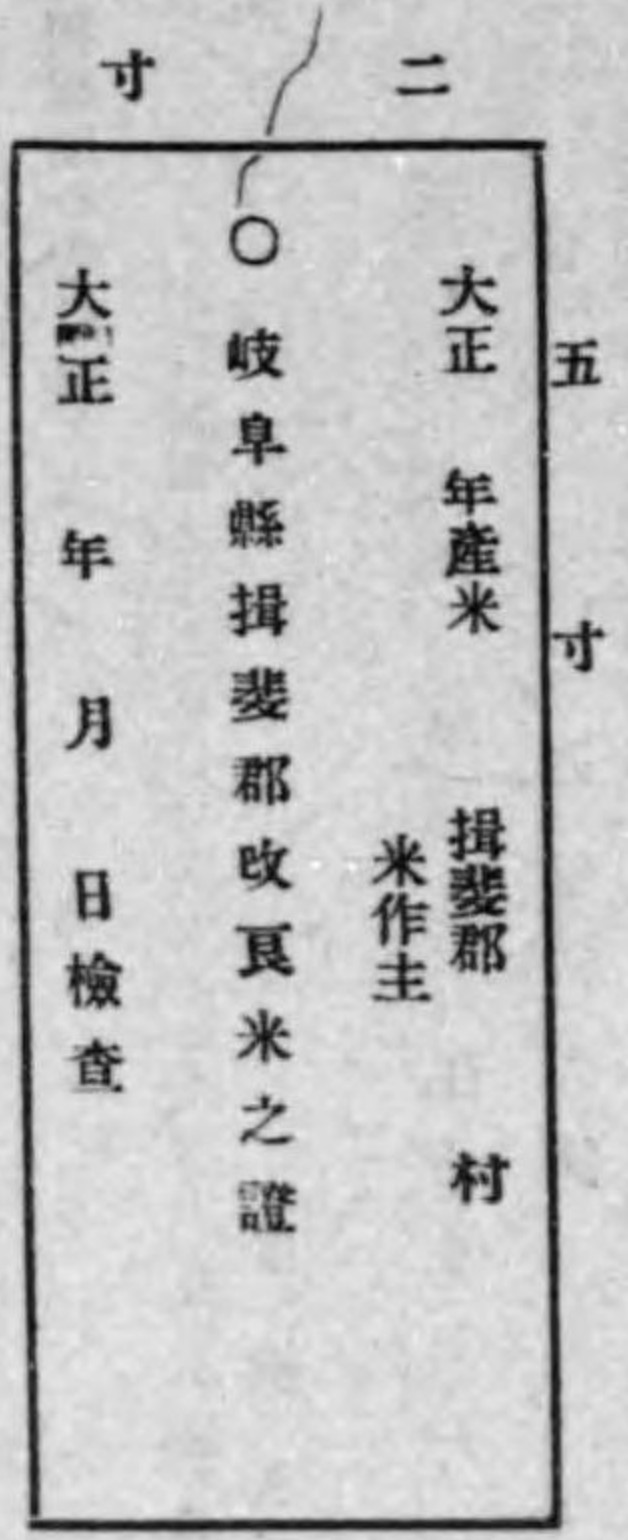 二寸
五寸
大正　年產米　揖斐郡　村
米作主
○岐阜縣揖斐郡改良米之證
大正　年　月　日檢查